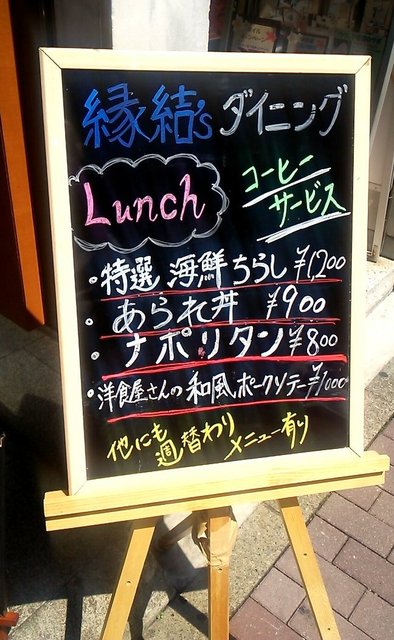 縁結'sダイニング
Lunch
コーヒー
サービス
・特選 海鮮ちらし ¥1,200
・あられ丼 ¥900
・ナポリタン ¥800
・洋食屋さんの和風ポークソテー ¥1000
他にも
週替わり
メニュー有り